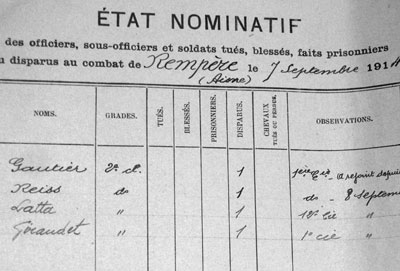 ÉTAT NOMINATIF
des officiers, sous-officiers et soldats tués, blessés, faits prisonniers
u disparus au combat de Rempère le 7 Septembre 1914
(Aisne)
NOMS. GRADES. TUÉS. BLESSÉS. PRISONNIERS. DISPARUS. CHEVAUX TUÉS OU PERDUS. OBSERVATIONS.
Gautier 2e cl. 1 1ère Cie - a rejoint depuis
Reiss do 1 do - 8 septem
Latta " 1 Cie "
Giraudet " 1 1e cie "